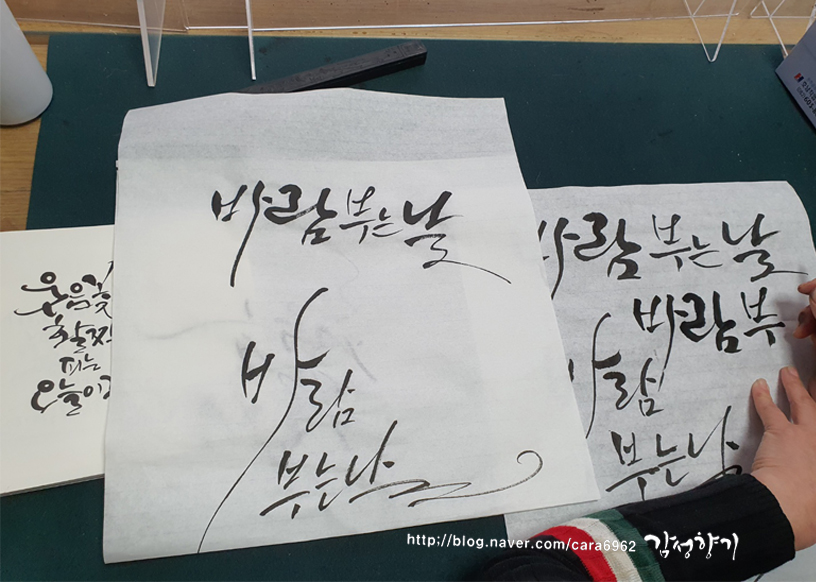 웃음꽃
활짝
피는
오늘이
바람부는날
바람
부는날
바람부는날
바람부
바람
부는날
http://blog.naver.com/cara6962 감성향기